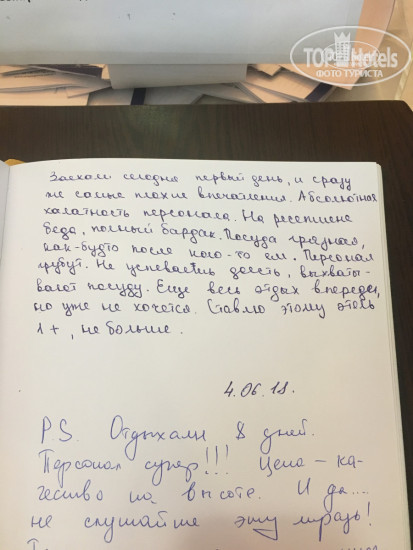 TOP Hotels
ФОТО ТУРИСТА
Заехали сегодня первый день, и сразу
же самые плохие впечатления. Абсолютная
халатность персонала. На ресепшене
беда, полный бардак. Посуда грязная,
как-будто после кого-то ем. Персонал
грубит. Не успеваешь доесть, выхваты-
вают посуду. Еще весь отдых впереди,
но уже не хочется. Ставлю этому отель
1+, не больше.
4.06.18.
P.S. Отдыхали 8 дней.
Персонал супер!!! Цена – ка-
чество на высоте. И да....
не слушайте эту мразь!